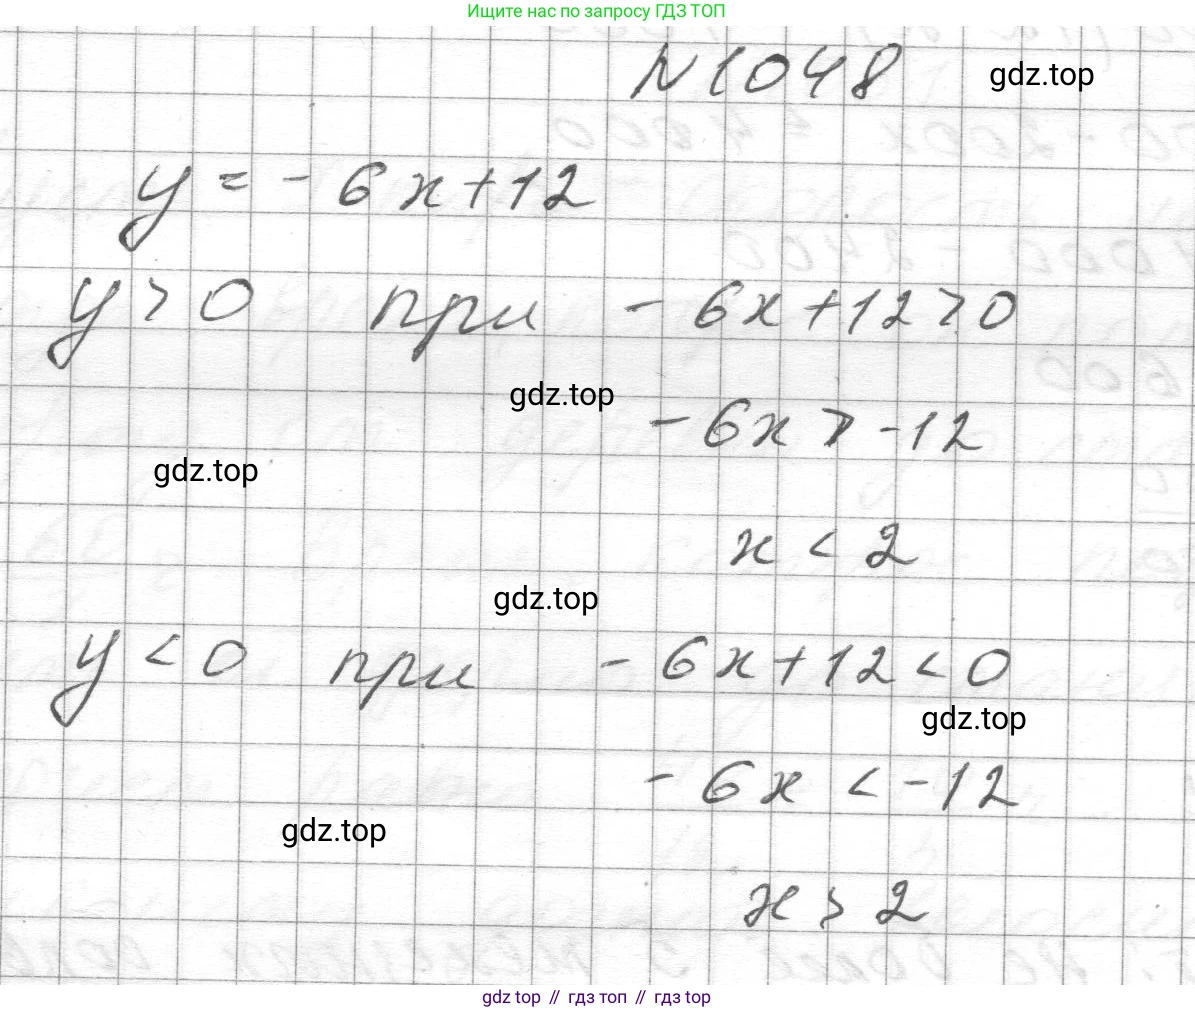 Ищите нас по запросу ГДЗ ТОП
N 1048
gdz.top
y = - 6x + 12
y > 0 при - 6x + 12 > 0
gdz.top
- 6x > -12
gdz.top
x < 2
gdz.top
y < 0 при - 6x + 12 < 0
gdz.top
- 6x < -12
gdz.top
x > 2
gdz top // гдз топ // гдз top